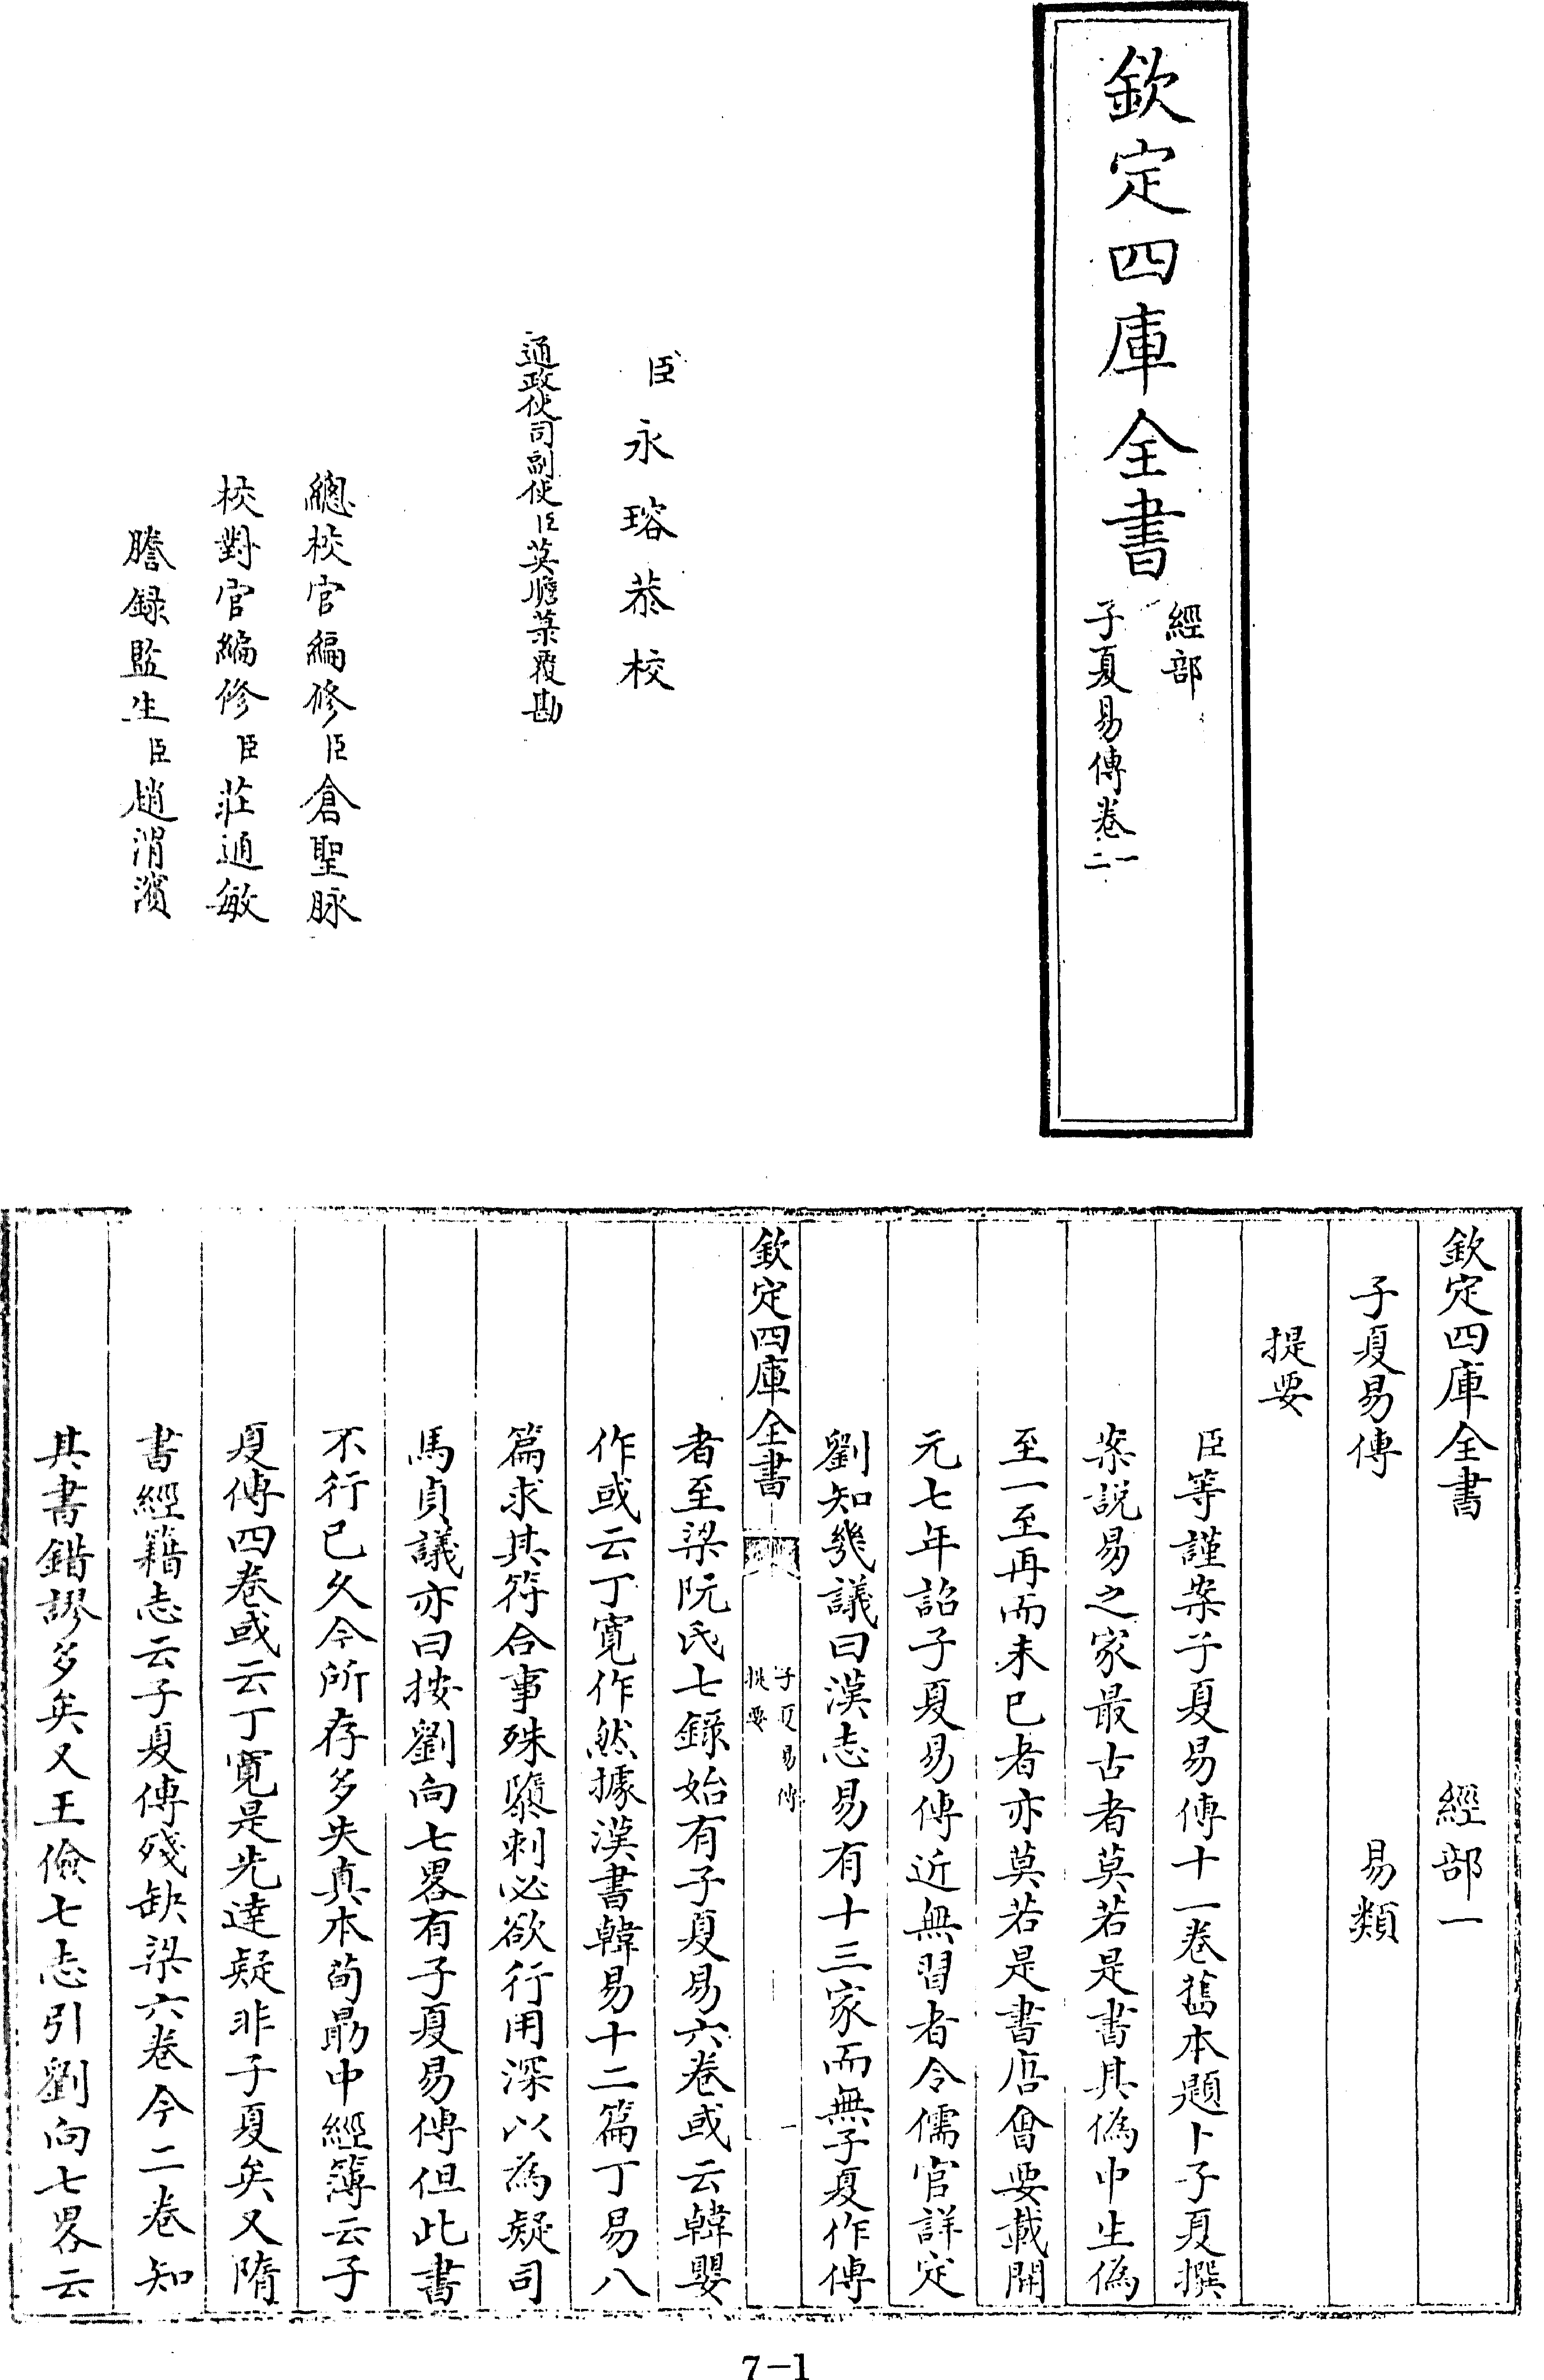 欽定四庫全書
經部
子夏易傳卷一二
臣永瑢恭校
通政使司副使臣莫瞻菉覆勘
總校官編修臣倉聖脉
校對官編修臣莊通敏
謄録監生臣趙渭濱
欽定四庫全書 經部一
子夏易傳 易類
提要
臣等謹案子夏易傳十一卷舊本題卜子夏撰
案説易之家最古者莫若是書其偽中生偽
至一至再而未已者亦莫若是書唐會要載開
元七年詔子夏易傳近無習者令儒官詳定
劉知幾議曰漢志易有十三家而無子夏作傳
欽定四庫全書
子夏易傳
提要
一
者至梁阮氏七錄始有子夏易六卷或云韓嬰
作或云丁寛作然據漢書韓易十二篇丁易八
篇求其符合事殊隳刺必欲行用深以為疑司
馬貞議亦曰按劉向七畧有子夏易傳但此書
不行已久今所存多失真本荀朂中經簿云子
夏傳四卷或云丁寛是先達疑非子夏矣又隋
書經籍志云子夏傳殘缺梁六卷今二卷知
其書錯謬多矣又王儉七志引劉向七畧云
7-1